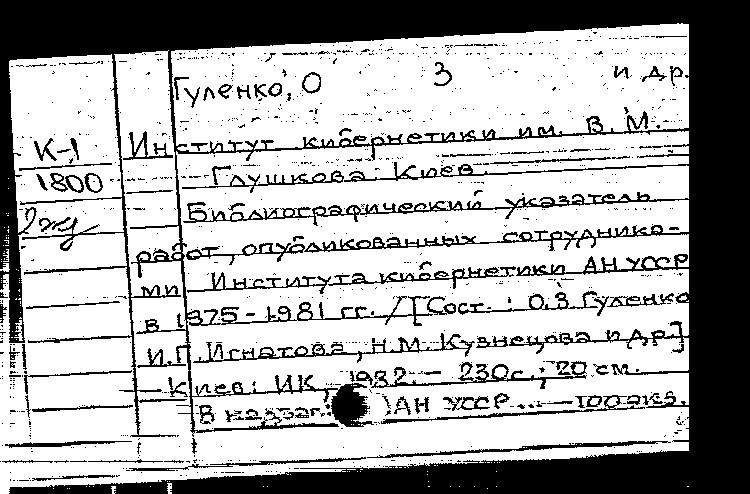 Гуленко, О З и др.
К-1
1800
2жд
Институт кибернетики им. В. М.
Глушкова. Киев.
Библиографический указатель
работ, опубликованных сотрудника-
ми Института кибернетики АН УССР
в 1975-1981 гг. / [Сост.: О.З Гуленко
И.Г. Игнатова, Н.М. Кузнецова и др.]
— Киев: ИК, 1982. — 230с.; 20 см.
В надзаг.: АН УССР ... — 100 экз.